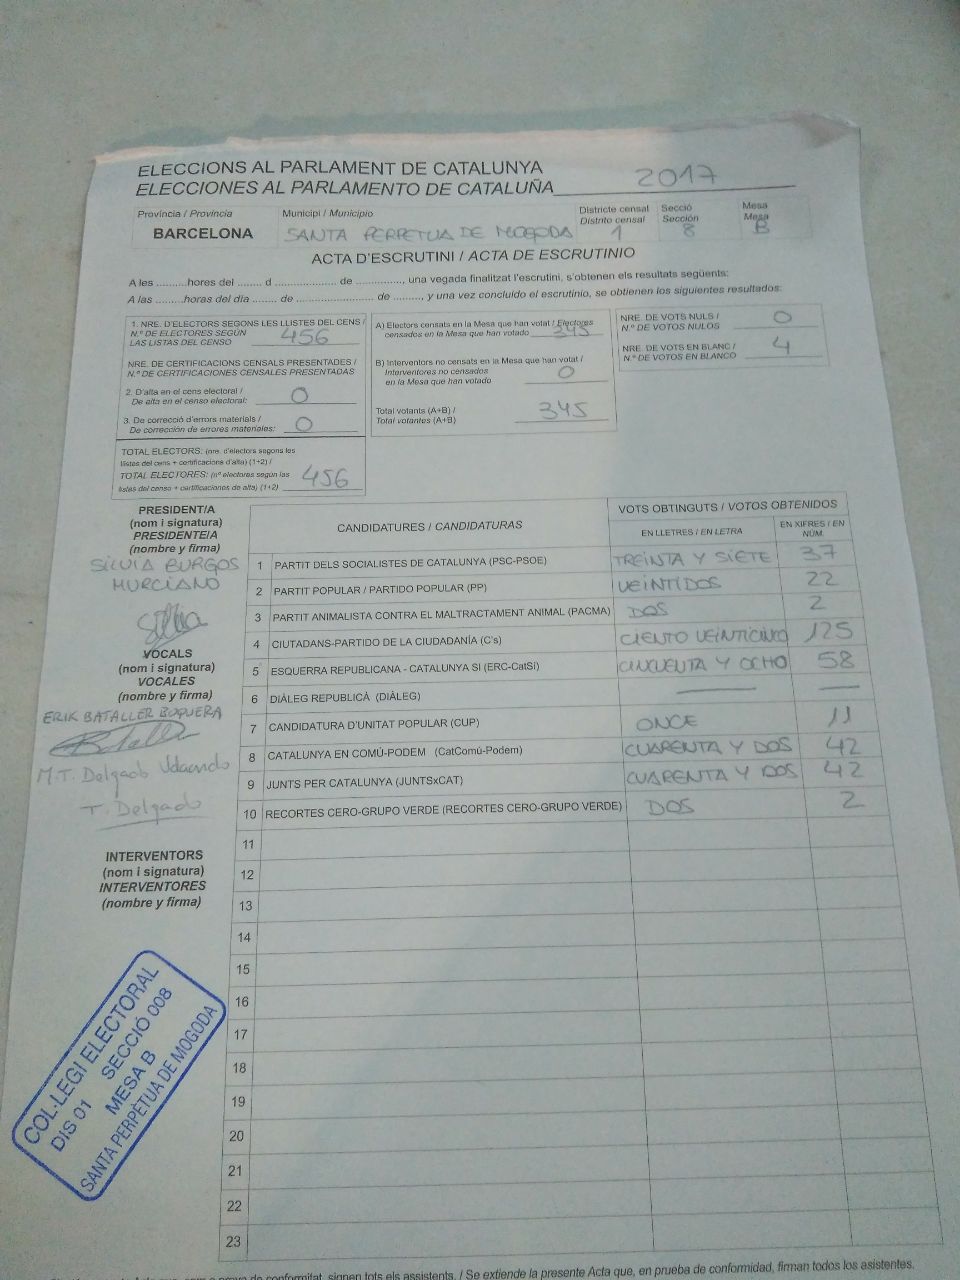 ELECCIONS AL PARLAMENT DE CATALUNYA
ELECCIONES AL PARLAMENTO DE CATALUÑA 2017
Província / Provincia
BARCELONA
Municipi / Municipio
SANTA PERPETUA DE MOGODA
Districte censal
Distrito censal
1
Secció
Sección
8
Mesa
Mesa
B
ACTA D'ESCRUTINI / ACTA DE ESCRUTINIO
A les ..........hores del ....... d .................... de ............, una vegada finalitzat l'escrutini, s'obtenen els resultats següents:
A las .........horas del día ....... de ......................... de ........., y una vez concluido el escrutinio, se obtienen los siguientes resultados:
1. NRE. D'ELECTORS SEGONS LES LLISTES DEL CENS /
N.º DE ELECTORES SEGÚN
LAS LISTAS DEL CENSO 456
NRE. DE CERTIFICACIONS CENSALS PRESENTADES /
N.º DE CERTIFICACIONES CENSALES PRESENTADAS
2. D'alta en el cens electoral /
De alta en el censo electoral: 0
3. De correcció d'errors materials /
De corrección de errores materiales: 0
TOTAL ELECTORS: (nre. d'electors segons les
llistes del cens + certificacions d'alta) (1+2) /
TOTAL ELECTORES: (nº electores según las
listas del censo + certificaciones de alta) (1+2) 456
A) Electors censats en la Mesa que han votat / Electores
censados en la Mesa que han votado 345
B) Interventors no censats en la Mesa que han votat /
Interventores no censados
en la Mesa que han votado 0
Total votants (A+B) /
Total votantes (A+B) 345
NRE. DE VOTS NULS /
N.º DE VOTOS NULOS 0
NRE. DE VOTS EN BLANC /
N.º DE VOTOS EN BLANCO 4
PRESIDENT/A
(nom i signatura)
PRESIDENTE/A
(nombre y firma)
SILVIA BURGOS
MURCIANO
Silvia
VOCALS
(nom i signatura)
VOCALES
(nombre y firma)
ERIK BATALLER BOQUERA
M.T. Delgado
T. Delgado
INTERVENTORS
(nom i signatura)
INTERVENTORES
(nombre y firma)
CANDIDATURES / CANDIDATURAS
VOTS OBTINGUTS / VOTOS OBTENIDOS
EN LLETRES / EN LETRA
EN XIFRES / EN NÚM.
1 PARTIT DELS SOCIALISTES DE CATALUNYA (PSC-PSOE) TREINTA Y SIETE 37
2 PARTIT POPULAR / PARTIDO POPULAR (PP) VEINTIDOS 22
3 PARTIT ANIMALISTA CONTRA EL MALTRACTAMENT ANIMAL (PACMA) DOS 2
4 CIUTADANS-PARTIDO DE LA CIUDADANÍA (C's) CIENTO VEINTICINCO 125
5 ESQUERRA REPUBLICANA - CATALUNYA SI (ERC-CatSí) CINCUENTA Y OCHO 58
6 DIÀLEG REPUBLICÀ (DIÀLEG) — —
7 CANDIDATURA D'UNITAT POPULAR (CUP) ONCE 11
8 CATALUNYA EN COMÚ-PODEM (CatComú-Podem) CUARENTA Y DOS 42
9 JUNTS PER CATALUNYA (JUNTSxCAT) CUARENTA Y DOS 42
10 RECORTES CERO-GRUPO VERDE (RECORTES CERO-GRUPO VERDE) DOS 2
11
12
13
14
15
16
17
18
19
20
21
22
23
COL·LEGI ELECTORAL
DIS 01 SECCIÓ 008
MESA B
SANTA PERPÈTUA DE MOGODA
conformitat, signen tots els assistents. / Se extiende la presente Acta que, en prueba de conformidad, firman todos los asistentes.